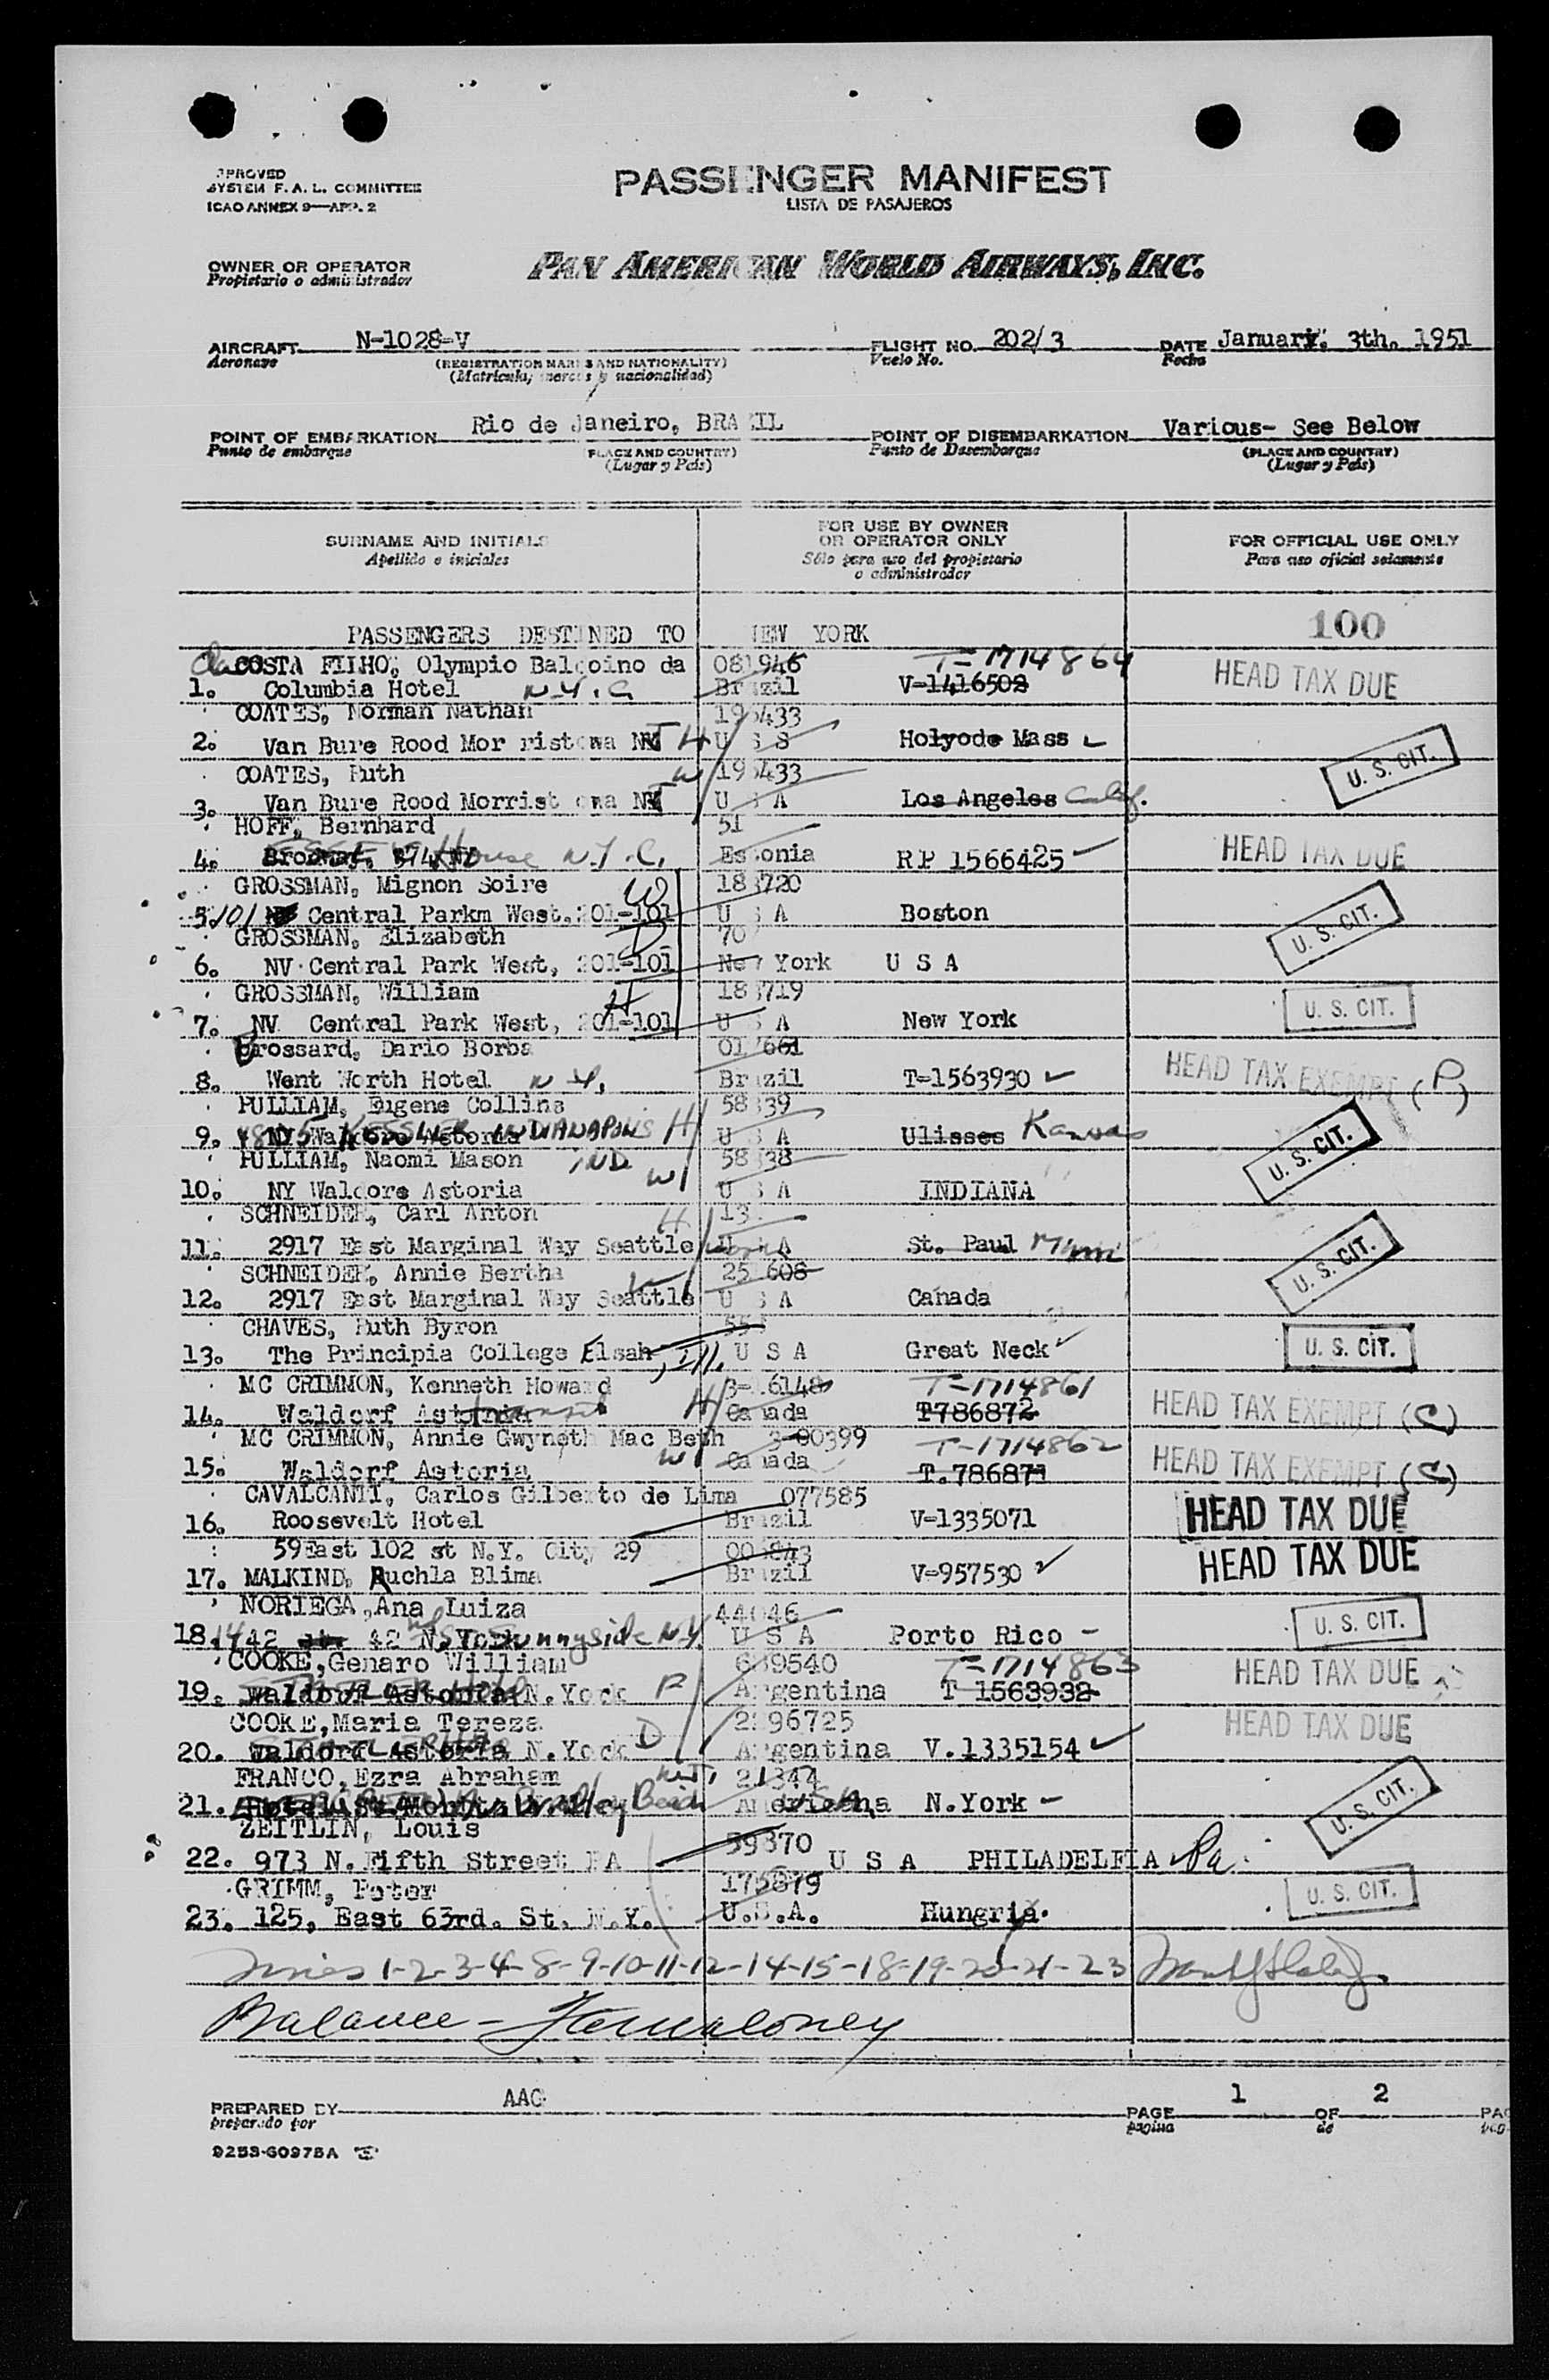 APPROVED
SYSTEM F. A. L. COMMITTEE
ICAO ANNEX 9—APP. 2
PASSENGER MANIFEST
LISTA DE PASAJEROS
OWNER OR OPERATOR
Propietario o administrador
PAN AMERICAN WORLD AIRWAYS, INC.
AIRCRAFT N-1028-V
Aeronave
(REGISTRATION MARKS AND NATIONALITY)
(Matricula, marcas y nacionalidad)
FLIGHT NO. 202/3
Vuelo No.
DATE January, 3th. 1951
Fecha
POINT OF EMBARKATION Rio de Janeiro, BRAZIL
Punto de embarque
(PLACE AND COUNTRY)
(Lugar y País)
POINT OF DISEMBARKATION Various- See Below
Punto de Desembarque
(PLACE AND COUNTRY)
(Lugar y País)
SURNAME AND INITIALS
Apellido e iniciales
FOR USE BY OWNER
OR OPERATOR ONLY
Sólo para uso del propietario
o administrador
FOR OFFICIAL USE ONLY
Para uso oficial solamente
PASSENGERS DESTINED TO NEW YORK 100
da COSTA FILHO, Olympio Balduino da 081946 T-1714864
1. Columbia Hotel N.Y.C Brazil V-1416502 HEAD TAX DUE
COATES, Norman Nathan 195433
2. Van Bure Rood Mor ristowa NJ H U S S Holyode Mass
COATES, Ruth W 195433 U. S. CIT.
3. Van Bure Rood Morrist owa NJ U S A Los Angeles Calif.
HOFF, Bernhard 51
4. House N.Y.C. Estonia RP 1566425 HEAD TAX DUE
GROSSMAN, Mignon Soire W 183720
5. 101 Central Parkm West. 201-101 U S A Boston U. S. CIT.
GROSSMAN, Elizabeth D 70
6. NV Central Park West, 201-101 New York U S A
GROSSMAN, William H 183719
7. NV Central Park West, 201-101 U S A New York U. S. CIT.
Brossard, Dario Borba 017661
8. Went Worth Hotel N.Y. Brazil T-1563930 HEAD TAX EXEMPT (P)
PULLIAM, Eugene Collins 58339
9. KESSLER INDIANAPOLIS H U S A Ulisses Kansas U. S. CIT.
PULLIAM, Naomi Mason IND W 58338
10. NY Waldore Astoria U S A INDIANA
SCHNEIDER, Carl Anton H 13
11. 2917 East Marginal Way Seattle U S A St. Paul Minn U. S. CIT.
SCHNEIDER, Annie Bertha W 25 608
12. 2917 East Marginal Way Seattle U S A Canada
CHAVES, Ruth Byron
13. The Principia College Elsah, Ill. U S A Great Neck U. S. CIT.
MC CRIMMON, Kenneth Howard 3-16148 T-1714861
14. Waldorf Astoria H Canada T786872 HEAD TAX EXEMPT (C)
MC CRIMMON, Annie Gwyneth Mac Beth 3-00399 T-1714862
15. Waldorf Astoria W Canada T.786871 HEAD TAX EXEMPT (C)
CAVALCANTI, Carlos Gilberto de Lima 077585
16. Roosevelt Hotel Brazil V-1335071 HEAD TAX DUE
59 East 102 st N.Y. City 29
17. MALKIND, Ruchla Blima Brazil V-957530 HEAD TAX DUE
NORIEGA, Ana Luiza 44046
18. 42 Sunnyside N.Y. U S A Porto Rico - U. S. CIT.
COOKE, Genaro William 689540 T-1714863
19. Waldorf Astoria N.York F Argentina T 1563932 HEAD TAX DUE
COOKE, Maria Tereza 2296725
20. Waldorf Astoria N.York D Argentina V.1335154 HEAD TAX DUE
FRANCO, Ezra Abraham 21344
21. Bradley Beach N.J. USA N.York - U. S. CIT.
ZEITLIN, Louis 59370
22. 973 N. Fifth Street PA U S A PHILADELFIA Pa.
GRIMM, Peter 175879
23. 125, East 63rd. St. N.Y. U.S.A. Hungria. U. S. CIT.
1-2-3-4-8-9-10-11-12-14-15-18-19-20-21-23
Balance -
PREPARED BY AAC
preparado por
PAGE 1 OF 2
página de
9253-60975A